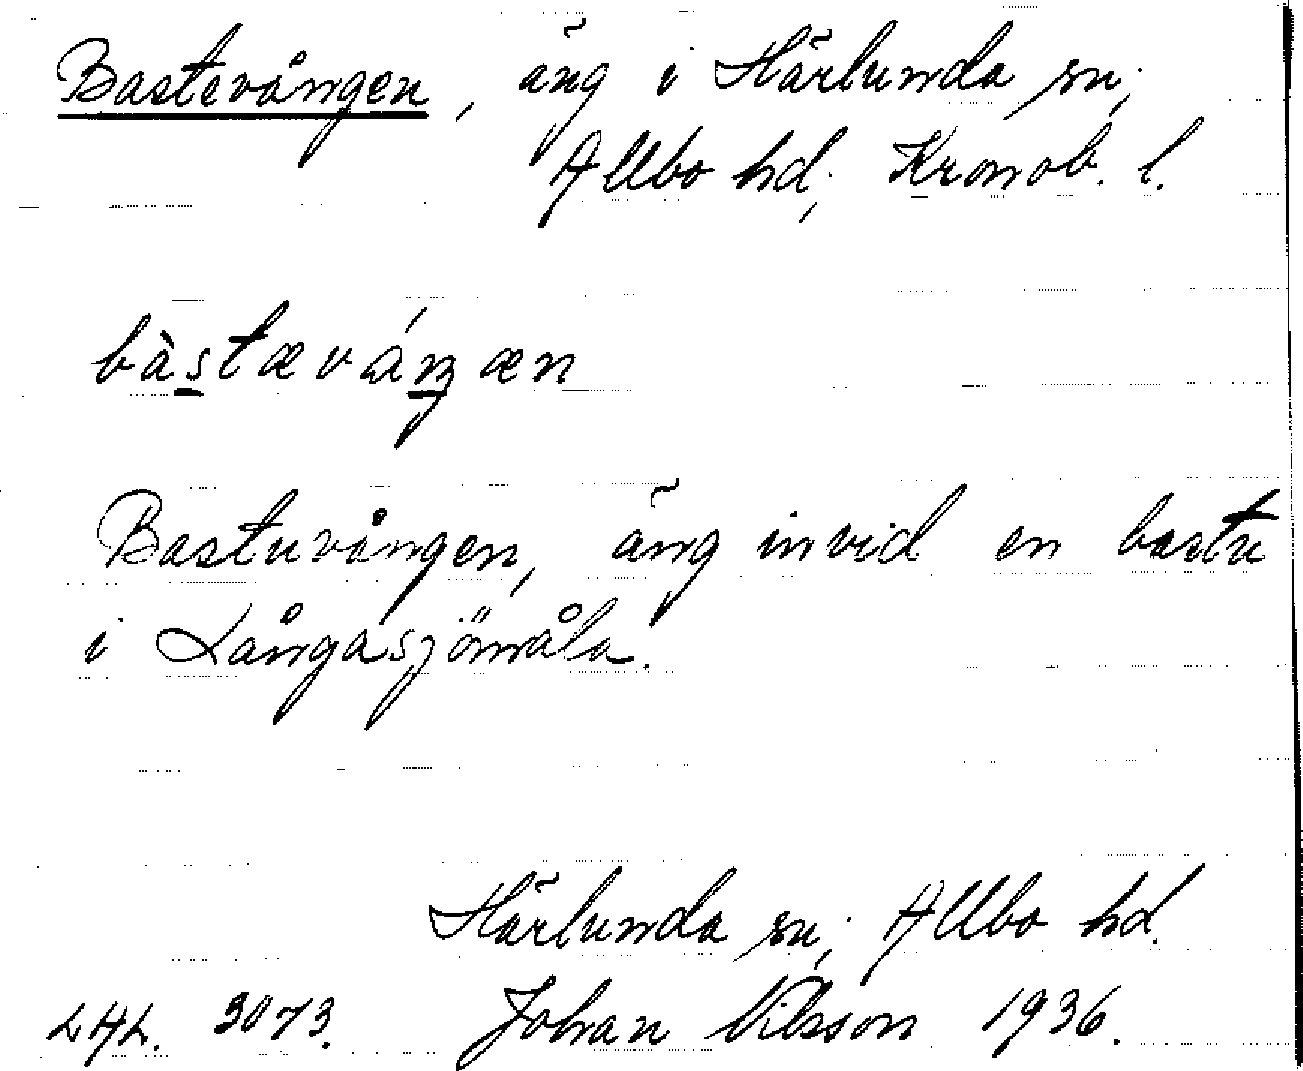 Bastevången, äng i Härlunda sn;
Allbo hd; Kronob. l.
bàstævåŋæn
Bastuvången, äng invid en bastu
i Långasjömåla.
Härlunda sn; Allbo hd.
3073. Johan Nilsson 1936.